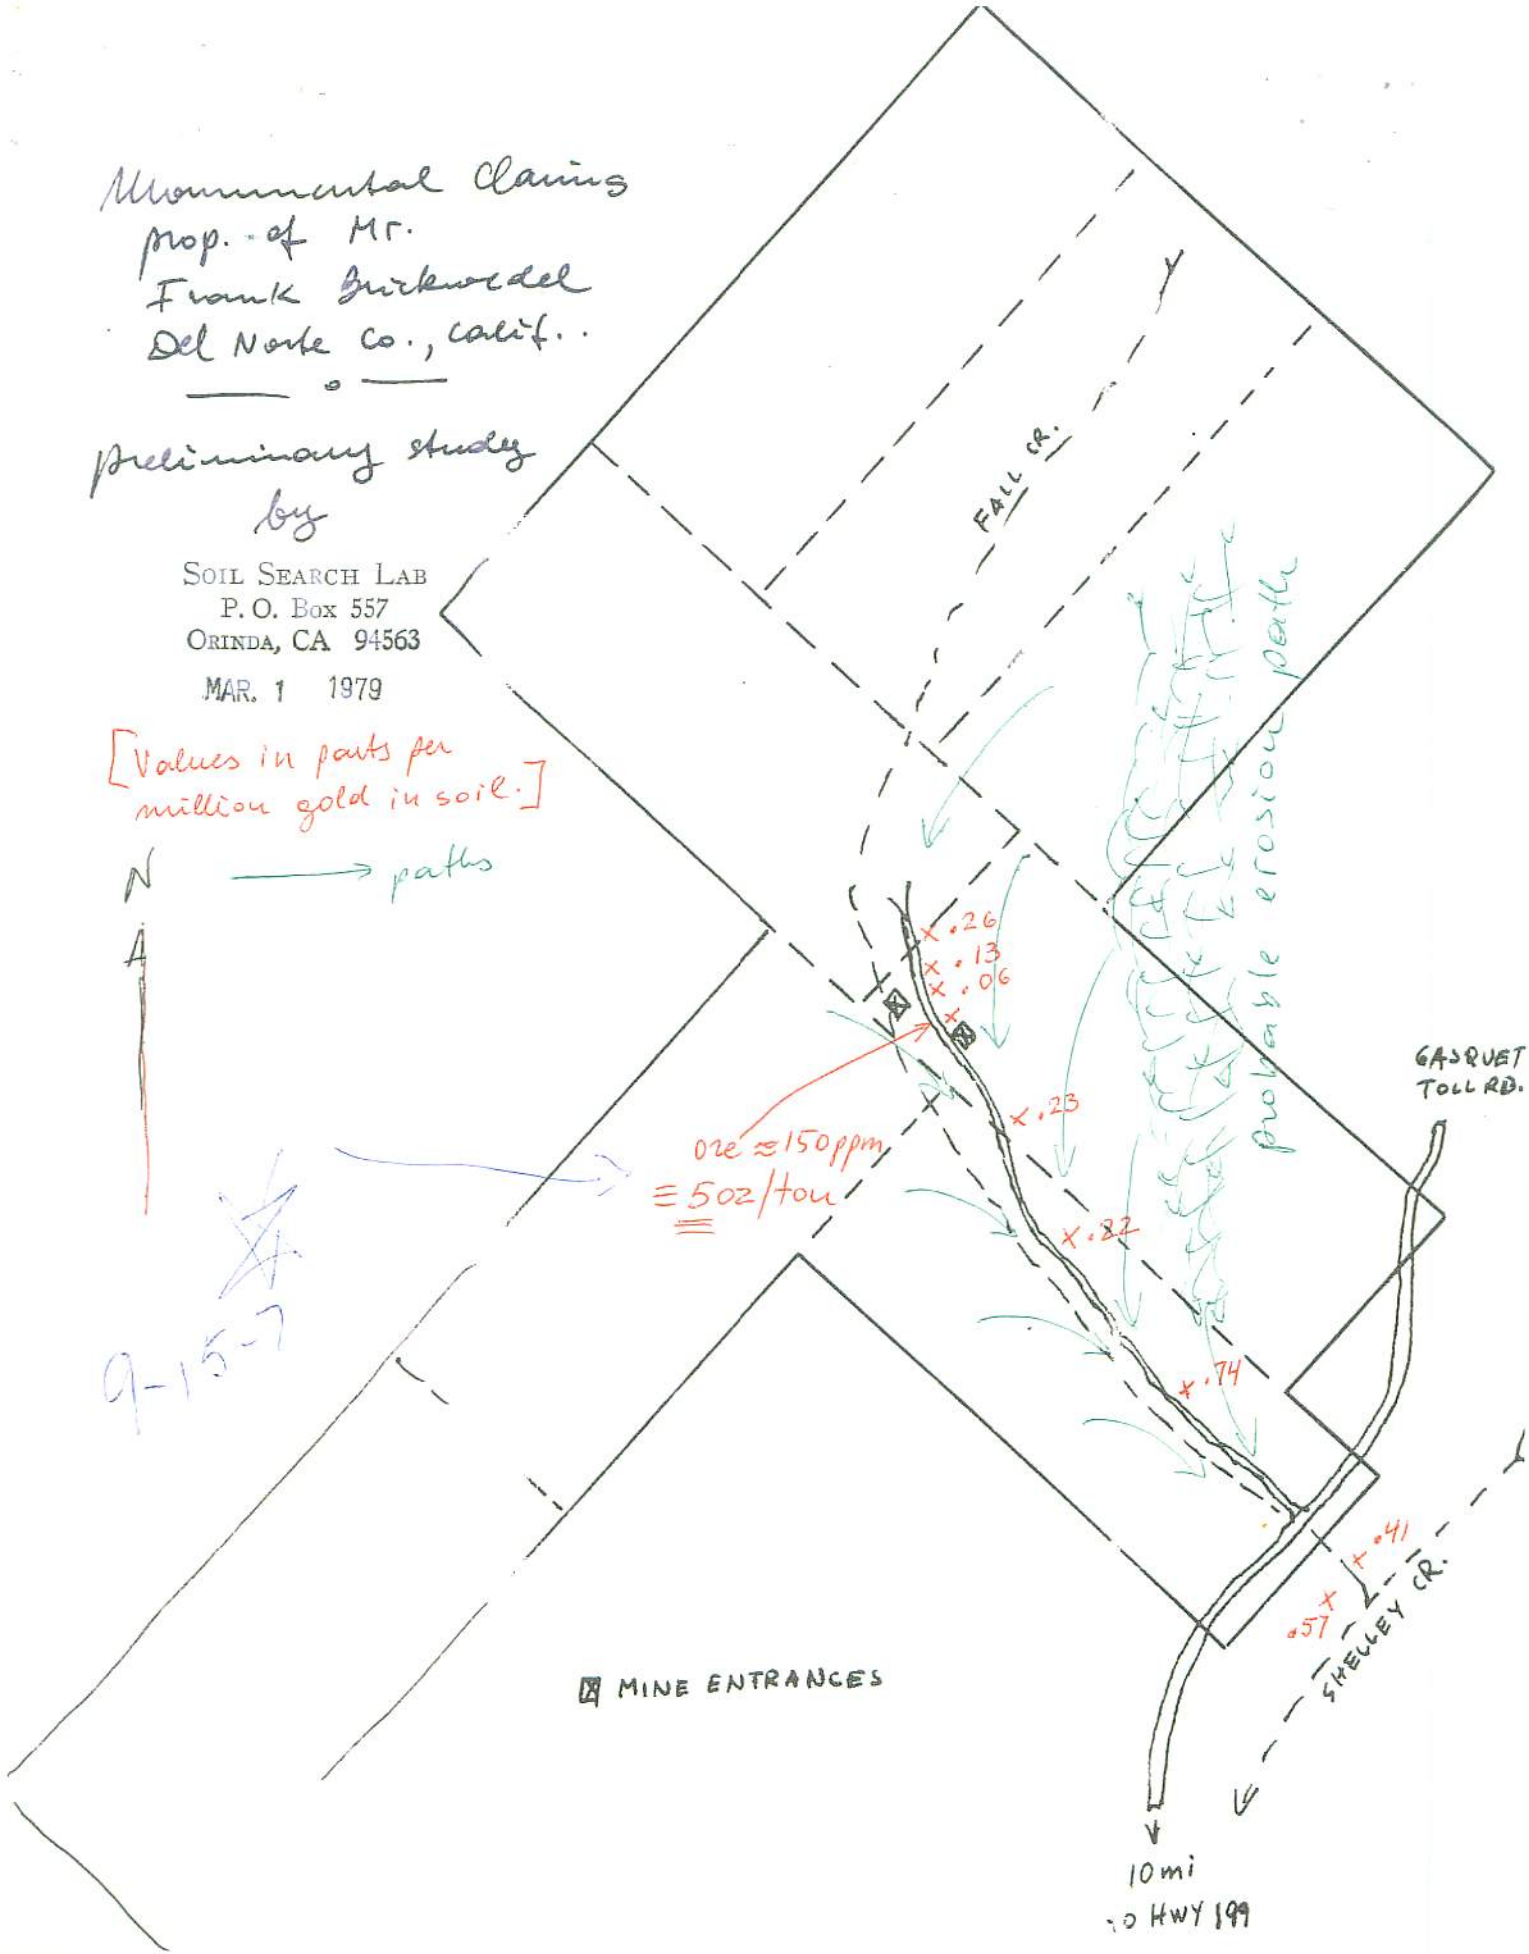 Monumental Claims
prop. of Mr.
Frank Brickwedel
Del Norte Co., Calif..
preliminary study
by
SOIL SEARCH LAB
P. O. Box 557
ORINDA, CA 94563
MAR. 1 1979
[Values in parts per
million gold in soil.]
N
paths
FALL CR.
probable erosion path
x .26
x .13
x .06
x
x .23
ore ≈ 150 ppm
≡ 5 oz/ton
x .22
x .74
GASQUET
TOLL RD.
x .41
x
.57
SHELLEY CR.
9-15-7
MINE ENTRANCES
10 mi
TO HWY 199